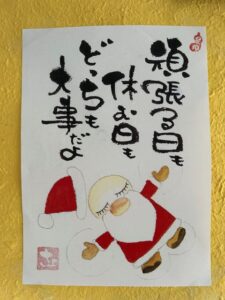 頑張る日も
休む日も
どっちも
大事だよ